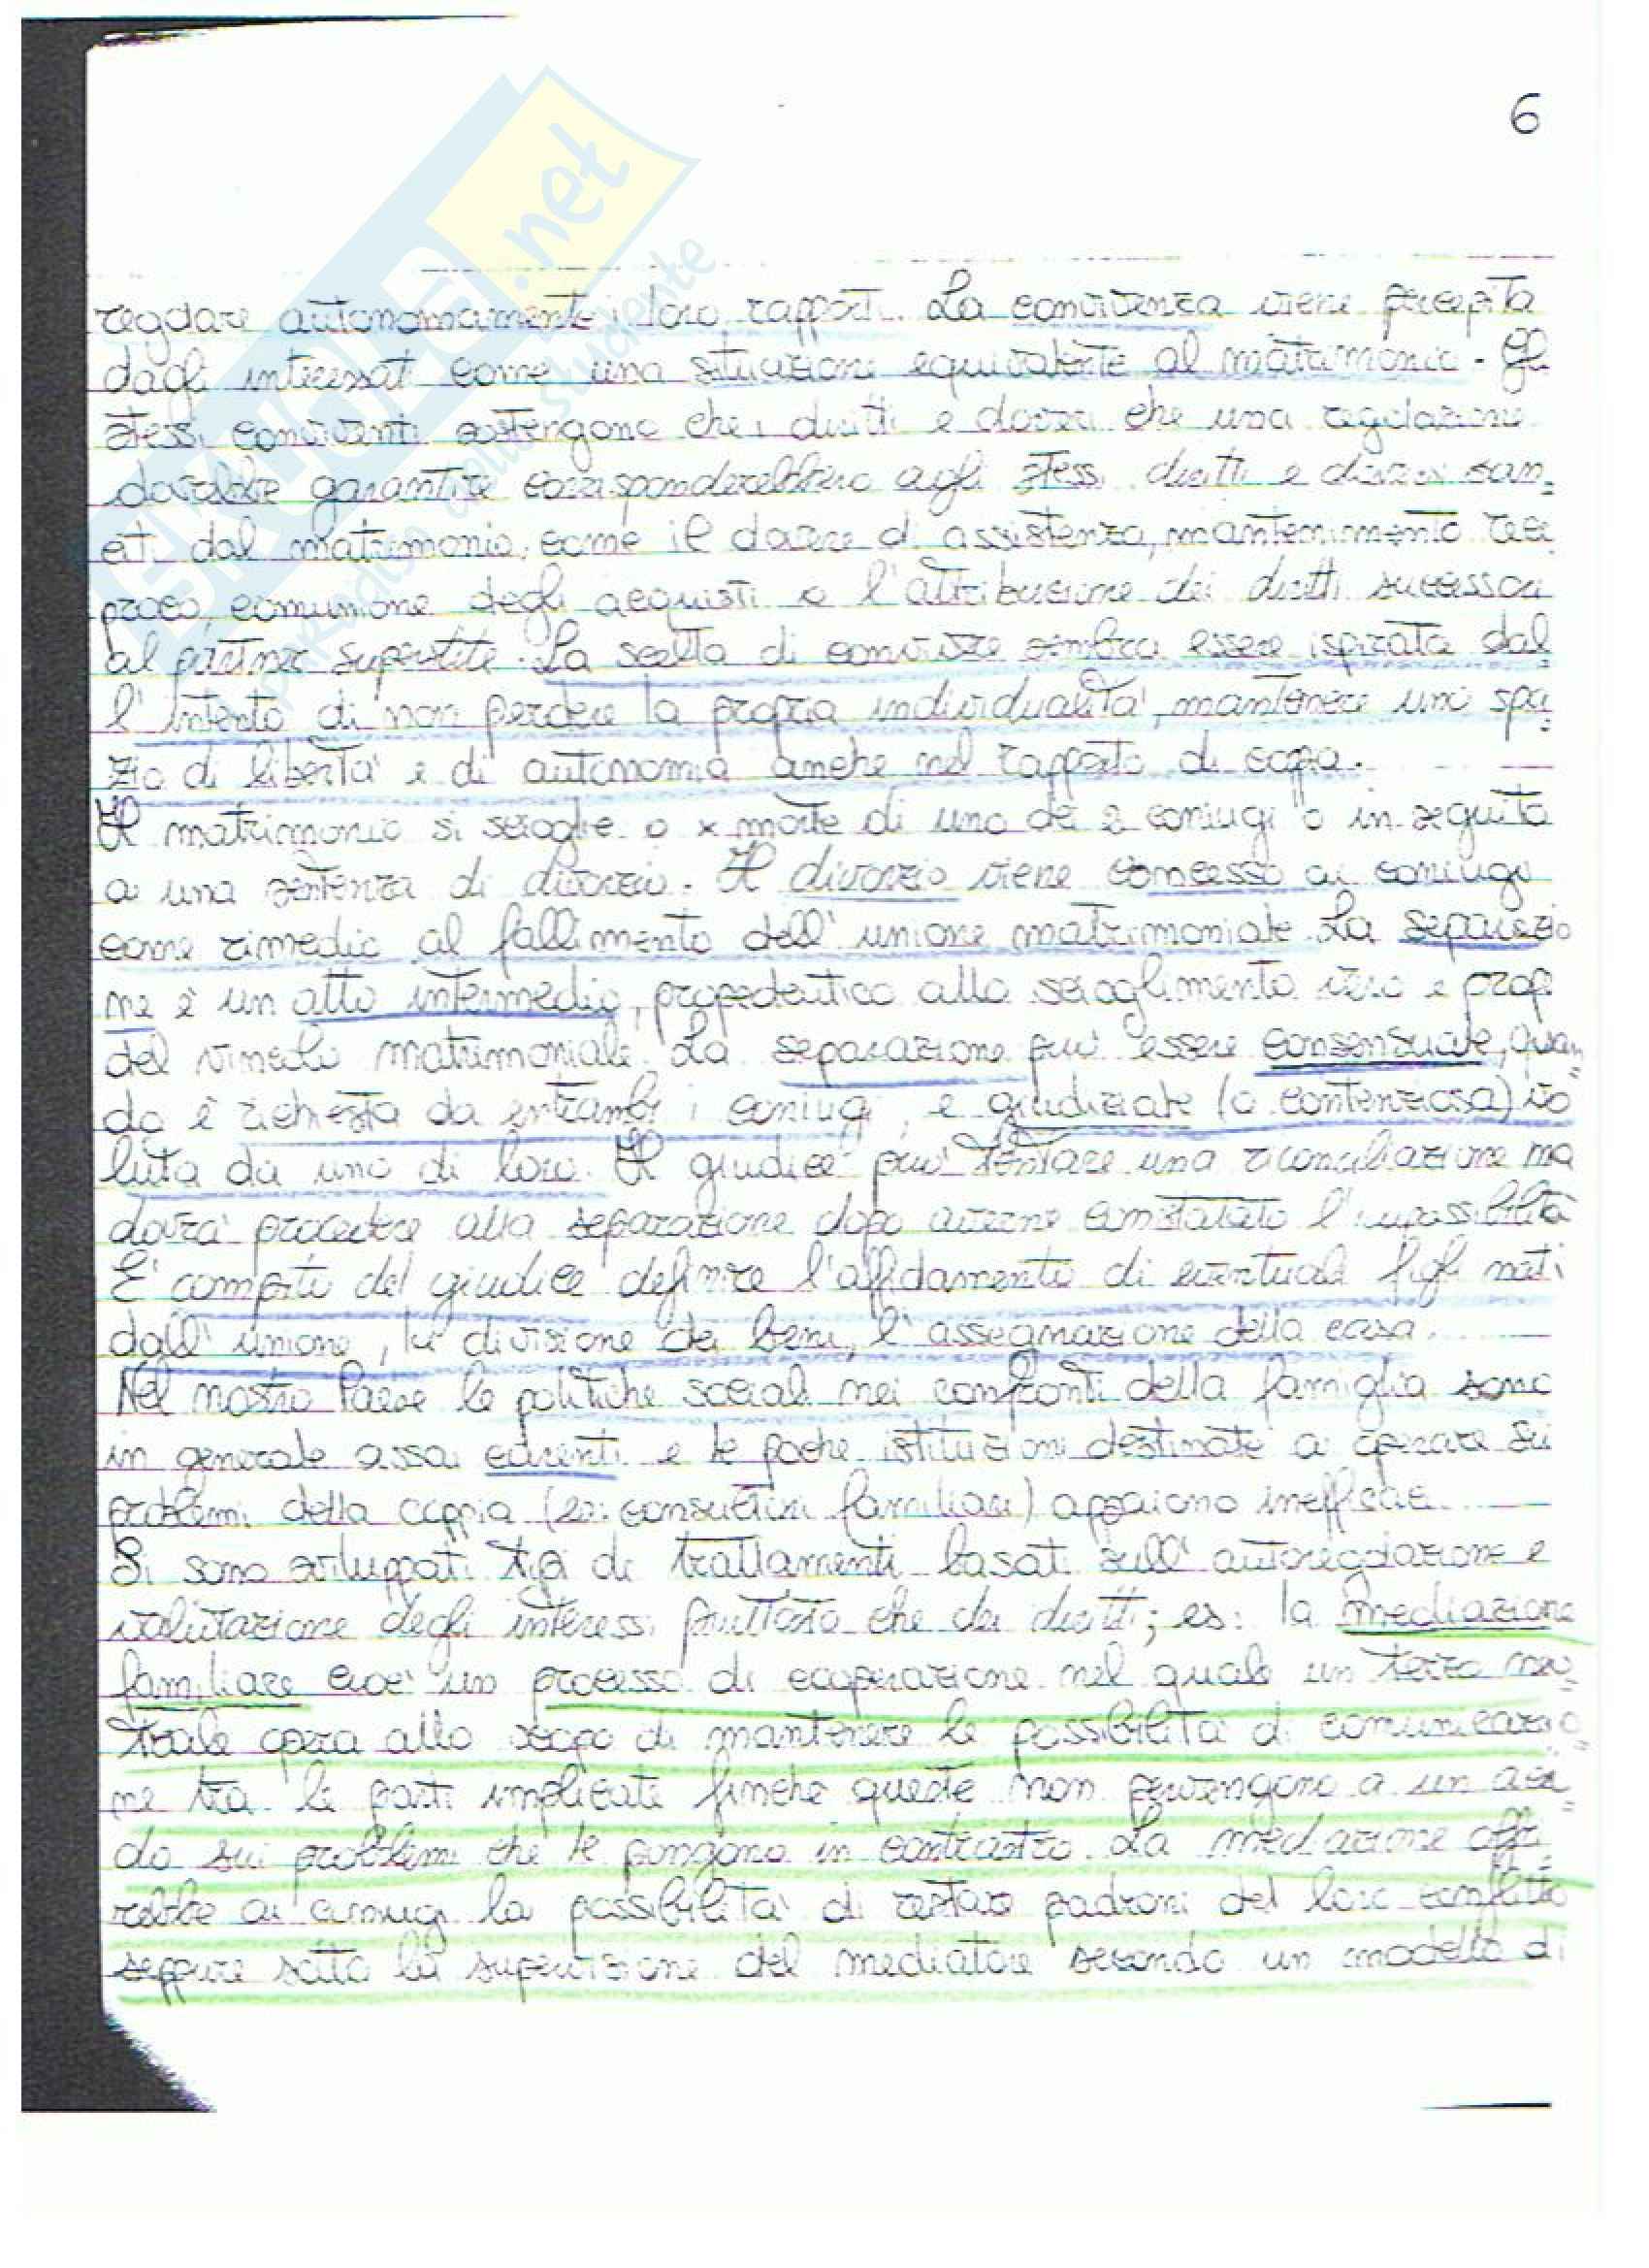 6
SKUOLA.net
regolare autonomamente i loro rapporti. La convivenza viene percepita
dagli interessati come una situazione equivalente al matrimonio. Gli
stessi conviventi sostengono che i diritti e doveri che una regolazione
dovrebbe garantire corrisponderebbero agli stessi diritti e doveri san=
citi dal matrimonio, come il dovere di assistenza, mantenimento reci
proco, comunione degli acquisti o l'attribuzione dei diritti successori
al partner superstite. La scelta di convivere sembra essere ispirata dal
l'intento di non perdere la propria individualità, mantenere uno spa=
zio di libertà e di autonomia anche nel rapporto di coppia.
Il matrimonio si scioglie o x morte di uno dei 2 coniugi o in seguito
a una sentenza di divorzio. Il divorzio viene concesso ai coniugi
come rimedio al fallimento dell'unione matrimoniale. La separazio
ne è un atto intermedio, propedeutico allo scioglimento vero e prop.
del vincolo matrimoniale. La separazione può essere consensuale, quan=
do è richiesta da entrambi i coniugi, e giudiziale (o contenziosa) vo
luta da uno di loro. Il giudice può tentare una riconciliazione ma
dovrà procedere alla separazione dopo averne constatato l'impossibilità
E' compito del giudice definire l'affidamento di eventuali figli nati
dall'unione, la divisione dei beni, l'assegnazione della casa.
Nel nostro Paese le politiche sociali nei confronti della famiglia sono
in generale assai carenti e le poche istituzioni destinate a operare sui
problemi della coppia (es: consultori familiari) appaiono inefficaci.
Si sono sviluppati tipi di trattamenti basati sull'autoregolazione e
valutazione degli interessi piuttosto che dei diritti; es: la mediazione
familiare cioè un processo di cooperazione nel quale un terzo neu=
trale opera allo scopo di mantenere le possibilità di comunicazio=
ne tra le parti implicate finché queste non pervengono a un accor=
do sui problemi che le pongono in contrasto. La mediazione offri
rebbe ai coniugi la possibilità di restare padroni del loro conflitto
seppure sotto la supervisione del mediatore secondo un modello di